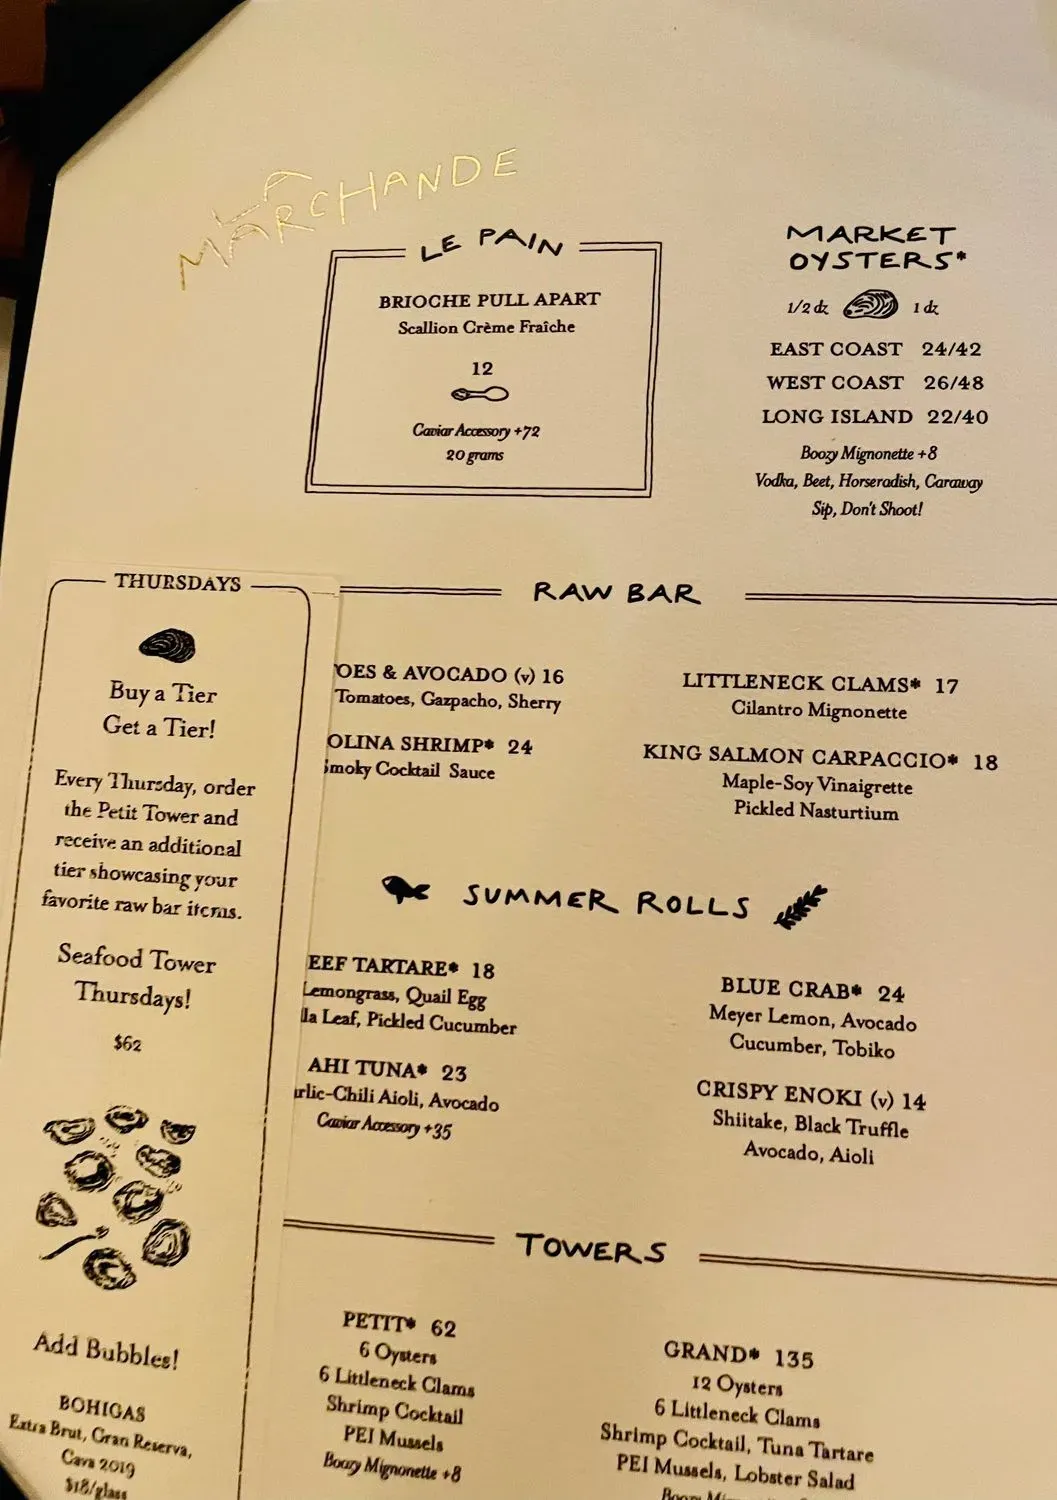 LA
MARCHANDE
LE PAIN
BRIOCHE PULL APART
Scallion Crème Fraîche
12
Caviar Accessory +72
20 grams
MARKET
OYSTERS*
1/2 dz 1 dz
EAST COAST 24/42
WEST COAST 26/48
LONG ISLAND 22/40
Boozy Mignonette +8
Vodka, Beet, Horseradish, Caraway
Sip, Don't Shoot!
THURSDAYS
Buy a Tier
Get a Tier!
Every Thursday, order
the Petit Tower and
receive an additional
tier showcasing your
favorite raw bar items.
Seafood Tower
Thursdays!
$62
Add Bubbles!
BOHIGAS
Extra Brut, Gran Reserva,
Cava 2019
$18/glass
RAW BAR
OES & AVOCADO (v) 16
Tomatoes, Gazpacho, Sherry
OLINA SHRIMP* 24
Smoky Cocktail Sauce
LITTLENECK CLAMS* 17
Cilantro Mignonette
KING SALMON CARPACCIO* 18
Maple-Soy Vinaigrette
Pickled Nasturtium
SUMMER ROLLS
EEF TARTARE* 18
Lemongrass, Quail Egg
la Leaf, Pickled Cucumber
AHI TUNA* 23
rlic-Chili Aioli, Avocado
Caviar Accessory +35
BLUE CRAB* 24
Meyer Lemon, Avocado
Cucumber, Tobiko
CRISPY ENOKI (v) 14
Shiitake, Black Truffle
Avocado, Aioli
TOWERS
PETIT* 62
6 Oysters
6 Littleneck Clams
Shrimp Cocktail
PEI Mussels
Boozy Mignonette +8
GRAND* 135
12 Oysters
6 Littleneck Clams
Shrimp Cocktail, Tuna Tartare
PEI Mussels, Lobster Salad